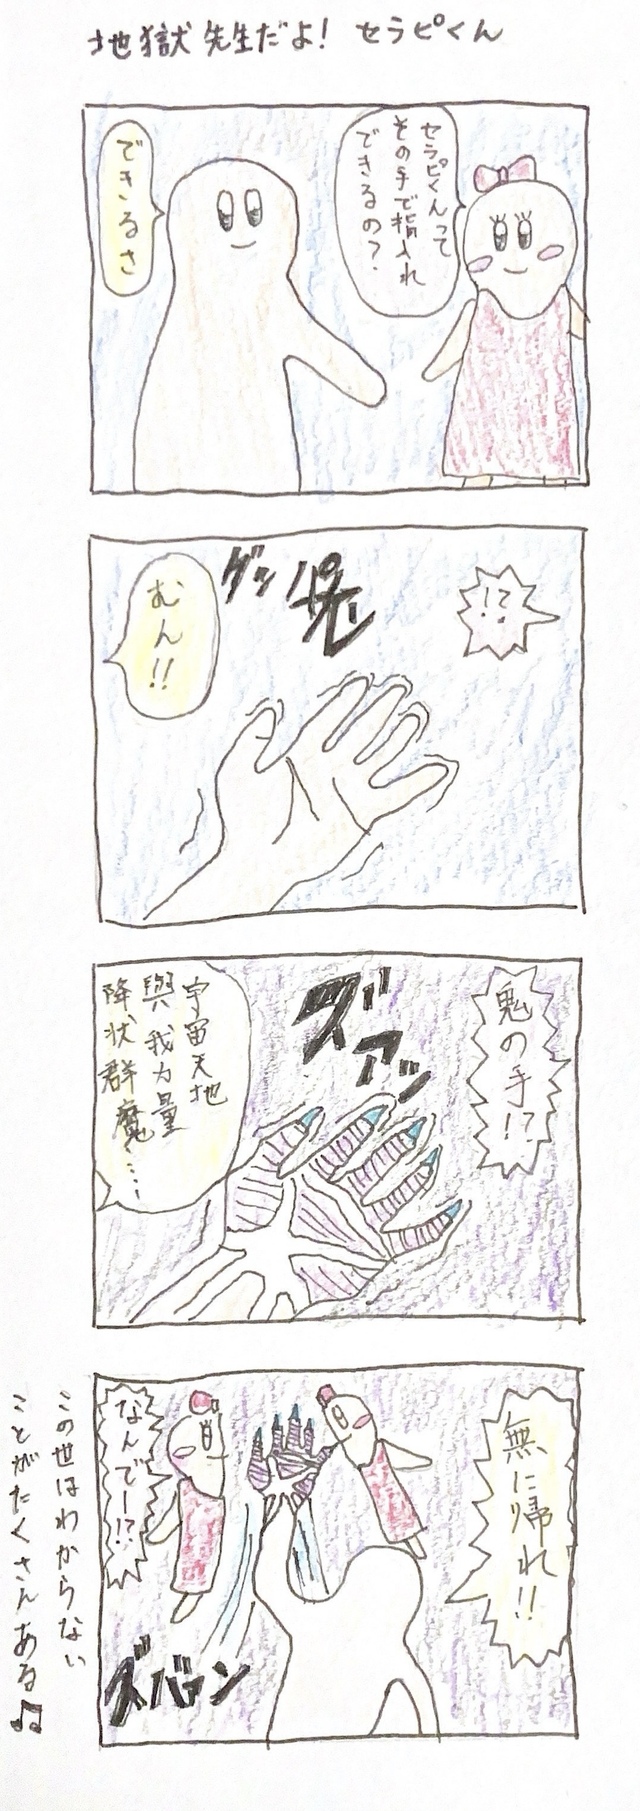 地獄先生だよ! セラピくん
セラピくんって
その手で指入れ
できるの?
できるさ
!?
グッ
パァ
むん!!
鬼の手!?
ズアッ
宇宙天地
與我力量
降伏群魔……
無に帰れ!!
なんでー!?
ズバーン
この世はわからない
ことがたくさんある♫